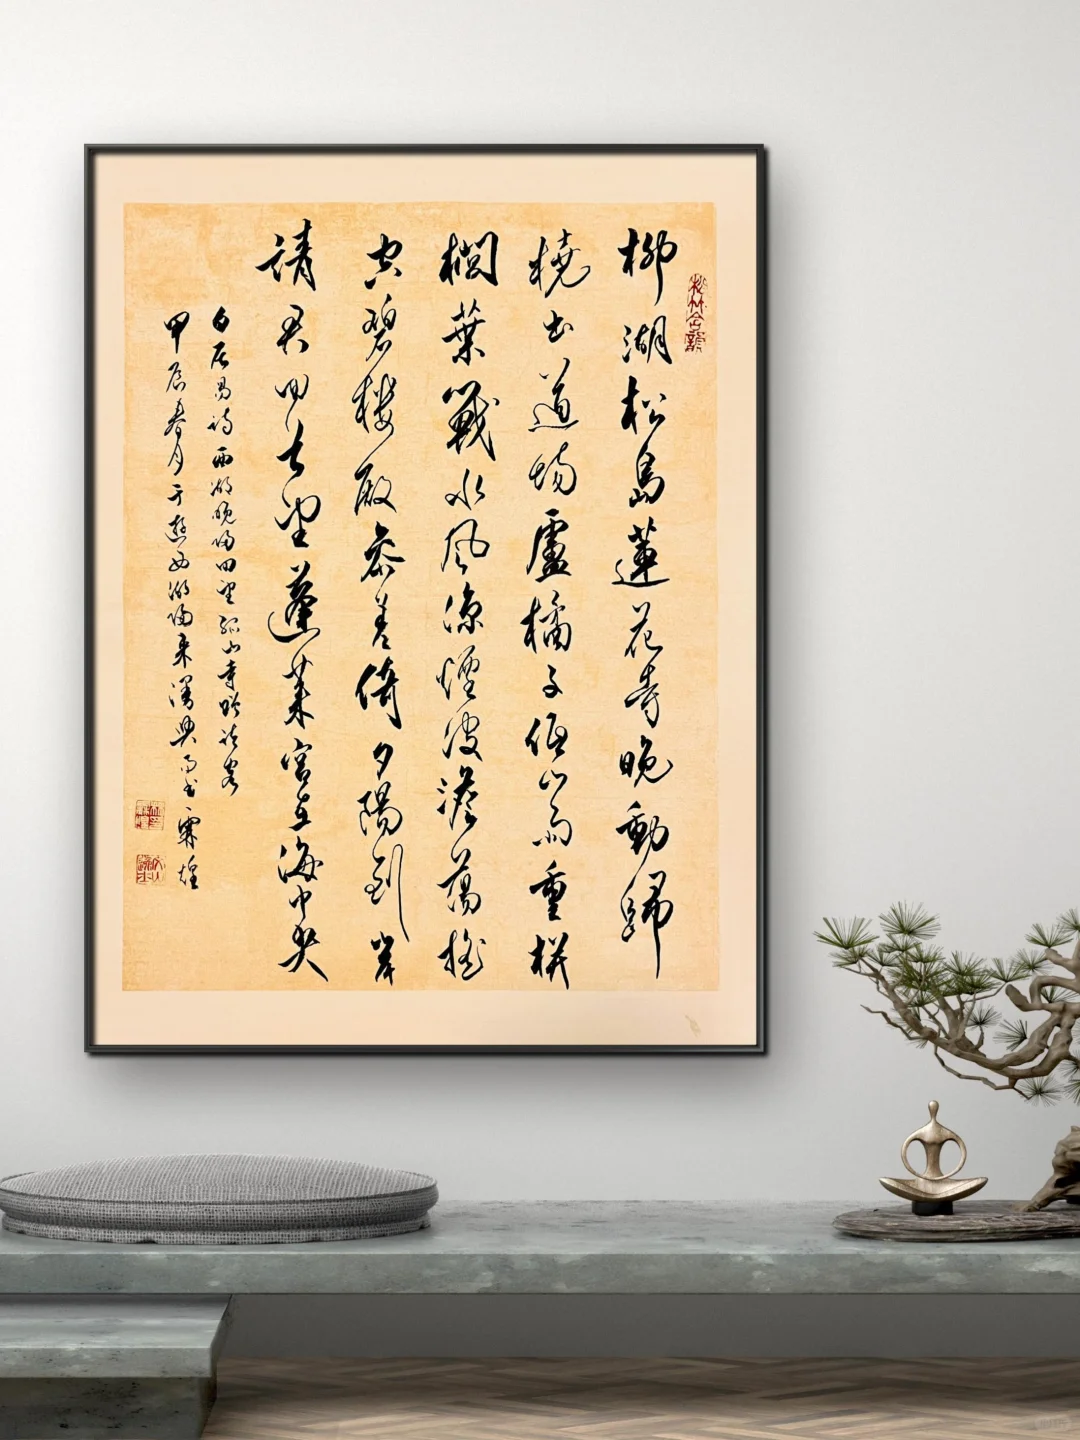 柳湖松島蓮花寺晚動歸
橈出道場盧橘子低山雨重栟
櫚葉戰水風涼煙波澹蕩搖
空碧樓殿參差倚夕陽到岸
請君回首望蓬萊宮在海中央
白居易詩西湖晚歸回望孤山寺贈諸客
甲辰春月于遊西湖歸來漫興而書霖煌